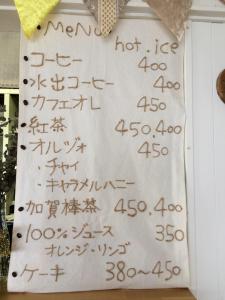 MeNu
hot.ice
コーヒー 400
水出コーヒー 400
カフェオレ 450
紅茶 450.400
オルヅォ 450
・チャイ
・キャラメルハニー
加賀棒茶 450.400
100%ジュース 350
オレンジ・リンゴ
ケーキ 380～450